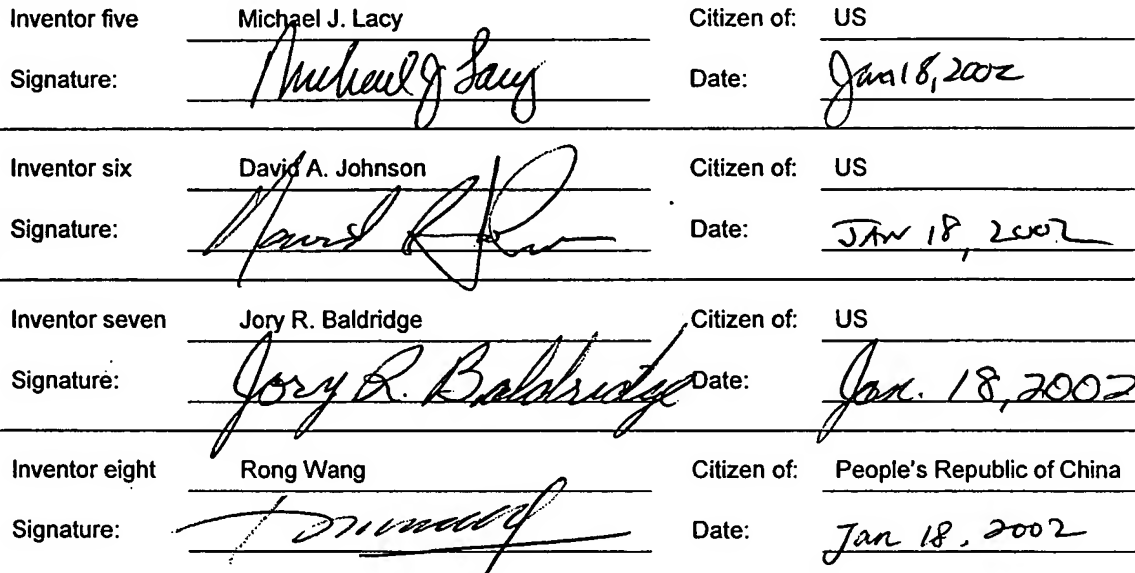 Inventor five Michael J. Lacy Citizen of: US
Signature: Michael J Lacy Date: Jan 18, 2002
Inventor six David A. Johnson Citizen of: US
Signature: David Date: JAN 18, 2002
Inventor seven Jory R. Baldridge Citizen of: US
Signature: Jory R. Baldridge Date: Jan. 18, 2002
Inventor eight Rong Wang Citizen of: People's Republic of China
Signature: Date: Jan 18, 2002